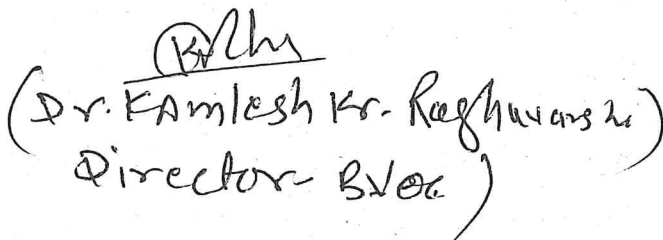 (Dr. KAmlesh Kr. Raghuvanshi)
Director- BVOC)